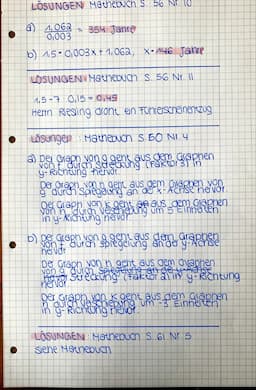 LÖSUNGEN Mathebuch S. 56 Nr 10
a) 1.062 / 0,003 = 354 Jahre
b) 1,5 = 0,003x + 1,062, x = 146 Jahre
LÖSUNGEN Mathebuch S. 56 Nr 11
1,5 - 7 · 0,15 = 0,45
Herrn Riesling droht ein Führerscheinentzug
Lösungen: Mathebuch S 60 Nr. 4
a) Der Graph von g geht aus dem Graphen
von f durch Streckung (Faktor 3) in
y-Richtung hervor.
Der Graph von h geht aus dem Graphen von
g durch Spiegelung an der x-Achse hervor.
Der Graph von k geht aus dem Graphen
von h durch Verschiebung um 5 Einheiten
in y-Richtung hervor.
b) Der Graph von g geht aus dem Graphen
von f durch Spiegelung an der y-Achse
hervor
Der Graph von h geht aus dem Graphen
von g durch Spiegelung an der y-Achse
Streckung (Faktor 2) in y-Richtung
hervor
Der Graph von k geht aus dem Graphen
von h durch Verschiebung um -3 Einheiten
in y-Richtung hervor.
LÖSUNGEN: Mathebuch S. 61 Nr 5
siehe Mathebuch